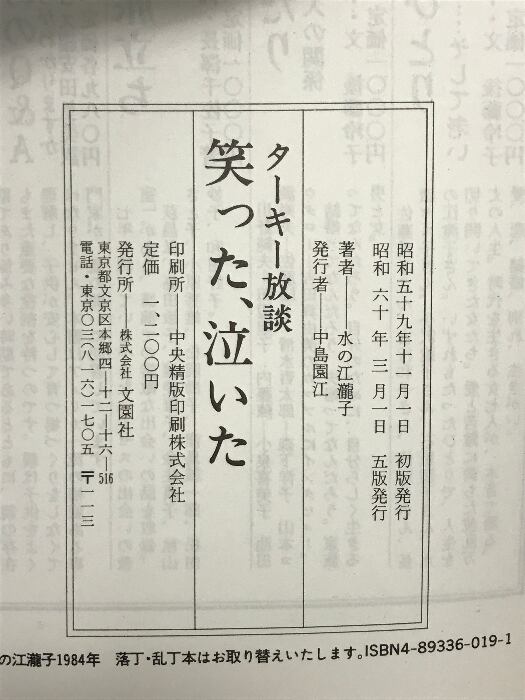 昭和五十九年十一月一日　初版発行
昭和　六十　年　三　月一日　五版発行
著者――水の江瀧子
発行者――中島園江
ターキー放談
笑った、泣いた
印刷所――中央精版印刷株式会社
定価　一、二〇〇円
発行所――株式会社　文園社
東京都文京区本郷四―十二―十六―516
電話・東京〇三(八一六)一七〇五　〒一一三
の江瀧子1984年　落丁・乱丁本はお取り替えいたします。ISBN4-89336-019-1